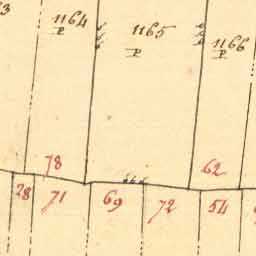 1164
P
1165
P
1166
P
78
62
28
71
69
72
54